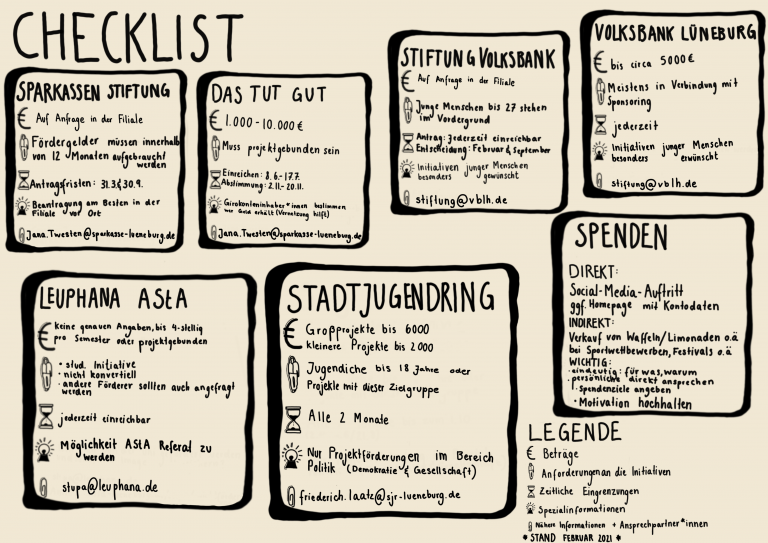 CHECKLIST
SPARKASSEN STIFTUNG
€ Auf Anfrage in der Filiale
Fördergelder müssen innerhalb
von 12 Monaten aufgebraucht
werden
Antragsfristen: 31.3 & 30.9.
Beantragung am Besten in der
Filiale vor Ort
Jana.Twesten@sparkasse-lueneburg.de
DAS TUT GUT
€ 1.000-10.000 €
Muss projektgebunden sein
Einreichen: 8.6.-17.7.
Abstimmung: 2.11.-20.11.
Girokonteninhaber*innen bestimmen
wer Geld erhält (Vernetzung hilft)
Jana.Twesten@sparkasse-lueneburg.de
STIFTUNG VOLKSBANK
€ Auf Anfrage in der Filiale
Junge Menschen bis 27 stehen
im Vordergrund
Antrag: Jederzeit einreichbar
Entscheidung: Februar & September
Initiativen junger Menschen
besonders gewünscht
stiftung@vblh.de
VOLKSBANK LÜNEBURG
€ bis circa 5000 €
Meistens in Verbindung mit
Sponsoring
jederzeit
Initiativen junger Menschen
besonders erwünscht
stiftung@vblh.de
LEUPHANA AStA
€ keine genauen Angaben, bis 4-stellig
pro Semester oder projektgebunden
• stud. Initiative
• nicht konvertiell
• andere Förderer sollten auch angefragt
werden
jederzeit einreichbar
Möglichkeit AStA Referal zu
werden
stupa@leuphana.de
STADTJUGENDRING
€ Großprojekte bis 6000
kleinere Projekte bis 2000
Jugendiche bis 18 Jahre oder
Projekte mit dieser Zielgruppe
Alle 2 Monate
Nur Projektförderungen im Bereich
Politik (Demokratie & Gesellschaft)
friederich.laatz@sjr-lueneburg.de
SPENDEN
DIREKT:
Social-Media-Auftritt
ggf. Homepage mit Kontodaten
INDIREKT:
Verkauf von Waffeln/Limonaden o.ä
bei Sportwettbewerben, Festivals o.ä
WICHTIG:
• eindeutig: für was, warum
• persönliche direkt ansprechen
• Spendenziele angeben
• Motivation hochhalten
LEGENDE
€ Beträge
Anforderungen an die Initiativen
Zeitliche Eingrenzungen
Spezialinformationen
Nähere Informationen + Ansprechpartner*innen
* STAND FEBRUAR 2021 *